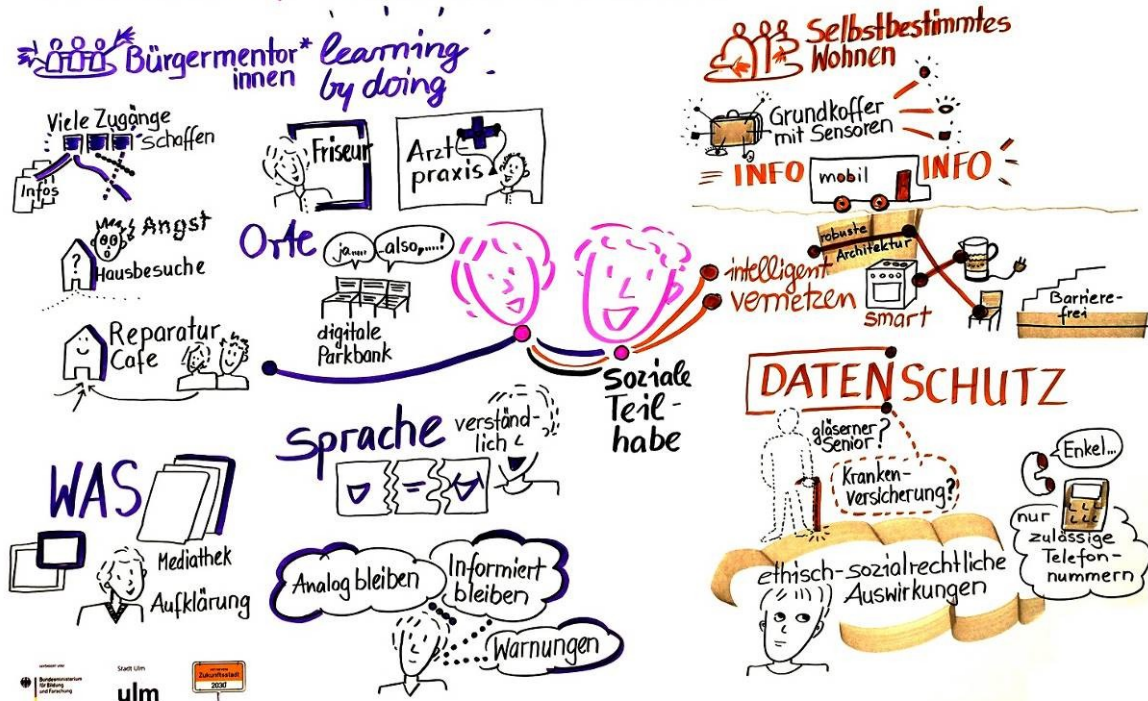 Bürgermentor*
innen
learning
by doing
Viele Zugänge
schaffen
Infos
Friseur
Arzt
praxis
?
Angst
Hausbesuche
Orte
ja....
also,....!
digitale
Parkbank
Reparatur
Cafe
Soziale
Teil-
habe
Sprache
verständ-
lich
=
WAS
Mediathek
Aufklärung
Analog bleiben
Informiert
bleiben
Warnungen
Selbstbestimmtes
Wohnen
Grundkoffer
mit Sensoren
INFO
mobil
INFO
robuste
Architektur
intelligent
vernetzen
smart
Barriere-
frei
DATENSCHUTZ
gläserner
Senior?
Kranken-
versicherung?
Enkel...
nur
zulässige
Telefon-
nummern
ethisch-sozialrechtliche
Auswirkungen
Bundesministerium
für Bildung
und Forschung
Stadt Ulm
ulm
Zukunftsstadt
2030